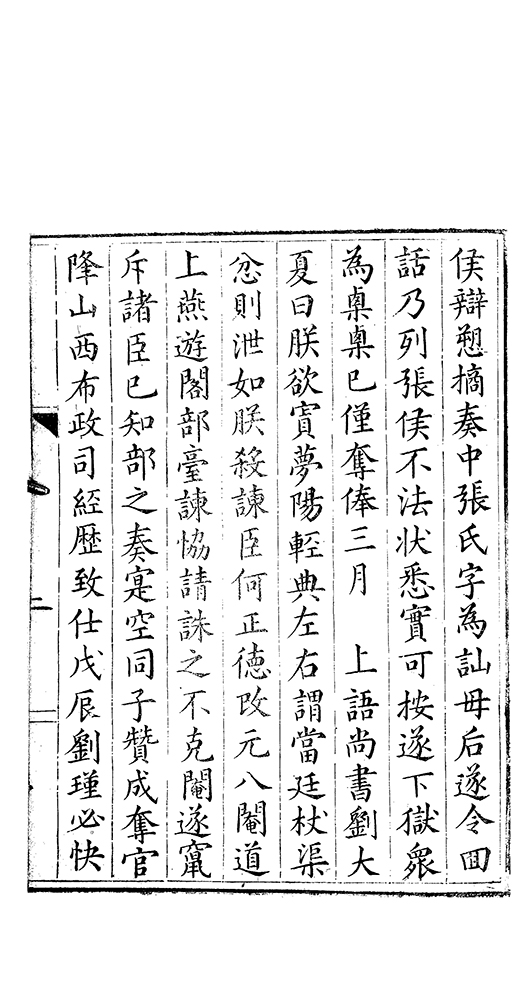 侯辯愬摘奏中張氏字為訕毋后遂令囬
話乃列張侯不法状悉實可按遂下獄衆
為㮚㮚已僅奪俸三月　上語尚書劉大
夏曰朕欲寘夢陽輕典左右謂當廷杖渠
忿則泄如朕殺諫臣何正徳改元八閹道
上燕遊閣部臺諫恊請誅之不克閹遂竄
斥諸臣已知部之奏寔空同子贊成奪官
降山西布政司經歴致仕戊辰劉瑾必快
二